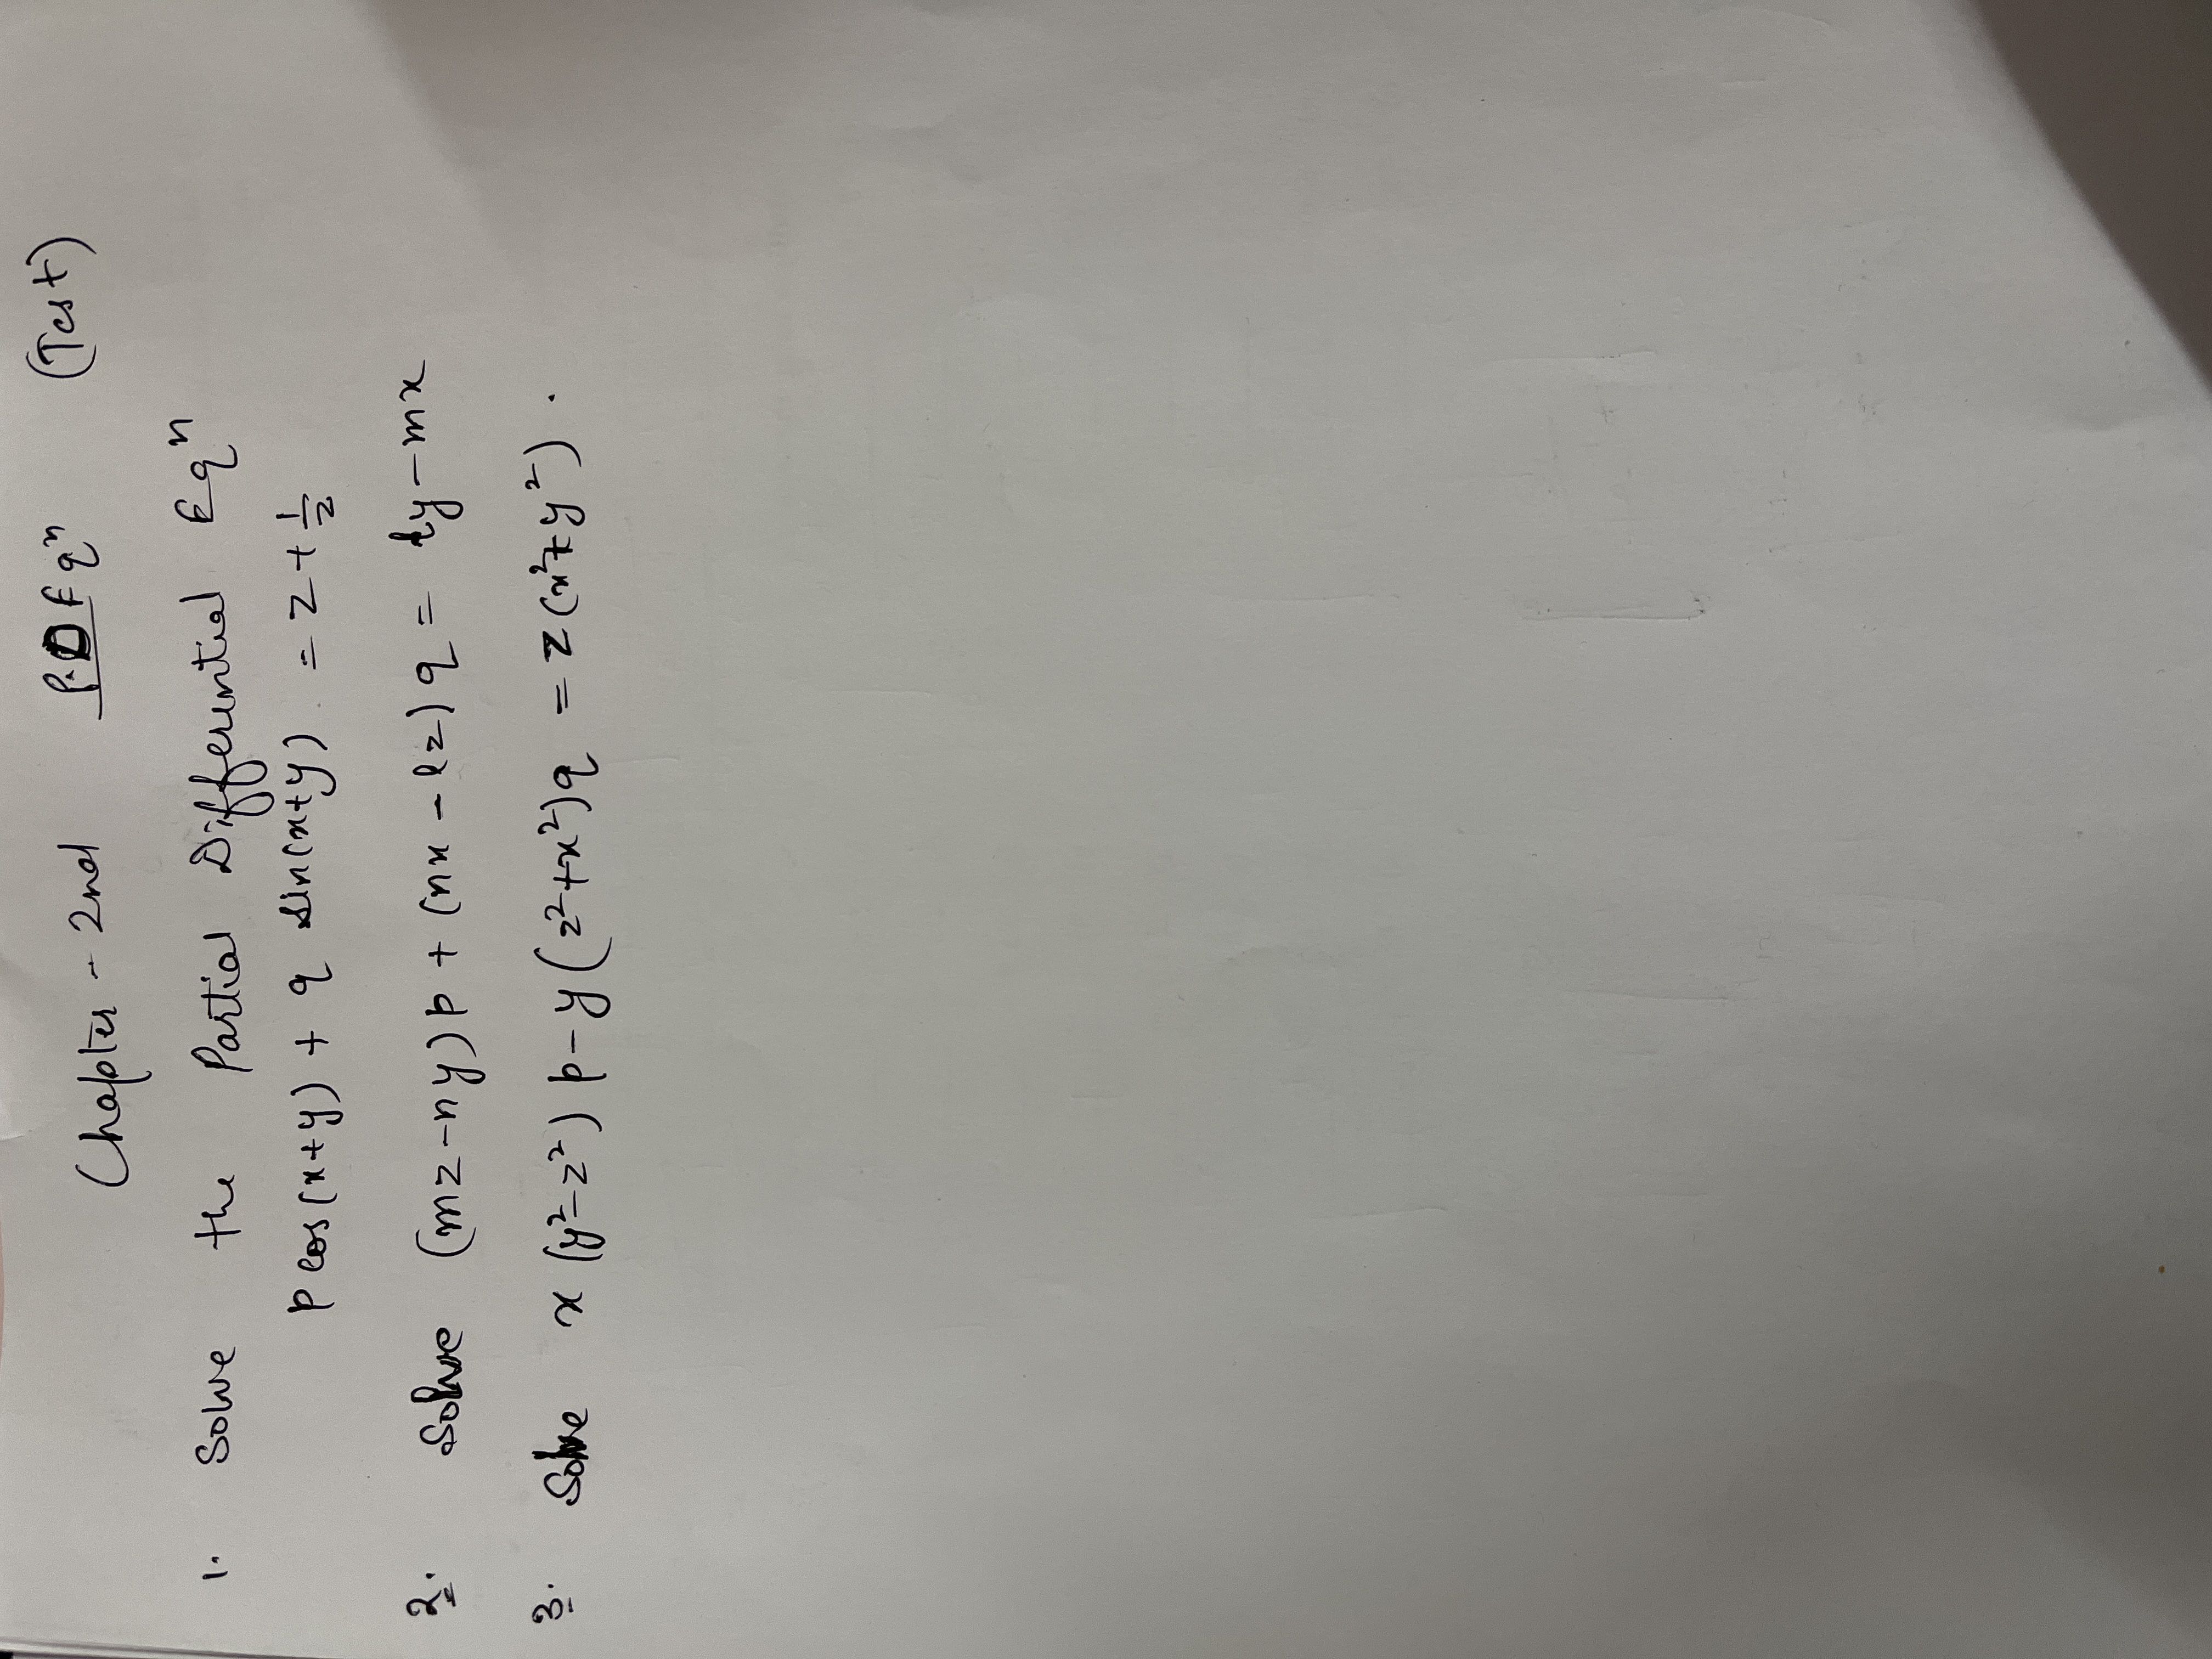 Chapter - 2nd P.D Eqⁿ (Test)
1. Solve the Partial Differential Eqⁿ
p cos(x+y) + q sin(x+y) = z + 1/z
2. Solve (mz - ny)p + (nx - lz)q = ly - mx
3. Solve x(y² - z²)p - y(z² + x²)q = z(x² + y²).